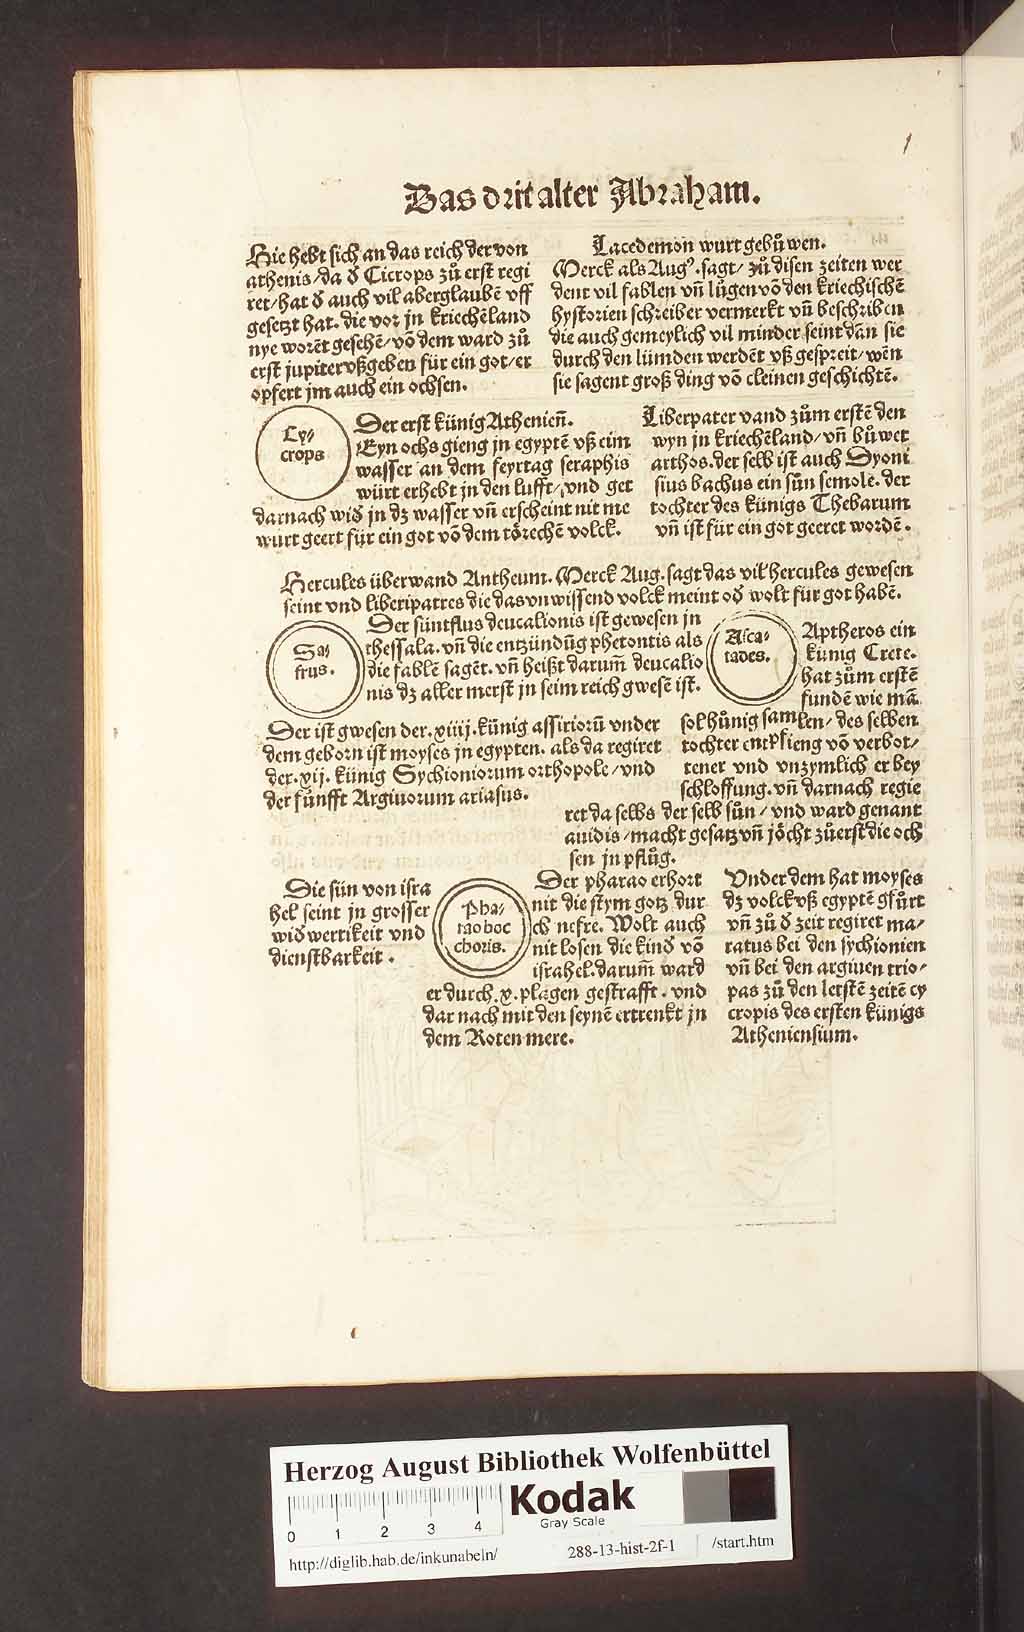 Das drit alter Abraham.
Hie hebt sich an das reich der von
athenis/da d̕ Cicrops zů erst regi
ret/hat d̕ auch vil aberglaubē vff
gesetzt hat. die vor jn kriechēland
nye worēt gesehē/vō dem ward zů
erst jupiter vßgeben für ein got/er
opfert jm auch ein ochsen.
Lacedemon wurt gebůwen.
Merck als Augꝰ. sagt/zů disen zeiten wer
dent vil fablen vñ lůgen vō den kriechischē
hystorien schreiber vermerkt vñ beschriben
die auch gemeylich vil minder seint dān sie
durch den lümden werdēt vß gespreit/wēn
sie sagent groß ding vō cleinen geschichtē.
Cy/
crops
Der erst künig Athenieñ.
Eyn ochs gieng jn egyptē vß eim
wasser an dem feyrtag seraphis
würt erhebt jn den lufft/vnd get
darnach wid̕ jn dz wasser vñ erscheint nit me
wurt geert für ein got vō dem törechē volck.
Liberpater vand zům erstē den
wyn jn kriechēland/vñ bůwet
arthos. der selb ist auch Dyoni
sius bachus ein sůn semole. der
tochter des künigs Thebarum
vñ ist für ein got geeret wordē.
Hercules überwand Antheum. Merck Aug. sagt das vil hercules gewesen
seint vnd liberipatres die das vnwissend volck meint od̕ wolt für got habē.
Sa/
frus.
Der süntflus deucalionis ist gewesen jn
thessala. vñ die entzündūg phetontis als
die fablē sagēt. vñ heißt darum̄ deucalio
nis dz aller merst jn seim reich gwesē ist.
Asca/
tades.
Aptheros ein
künig Crete.
hat zům erstē
fundē wie mā
sol hůnig samlen/des selben
tochter entpfieng vō verbot/
tener vnd vnzymlich er bey
schloffung. vñ darnach regie
ret da selbs der selb sůn/vnd ward genant
auidis/macht gesatz vñ jöcht zů erst die och
sen jn pflůg.
Der ist gwesen der .xiiij. künig assiriorū vnder
dem geborn ist moyses jn egypten. als da regiret
der .xij. künig Sychioniorum orthopole/vnd
der fünfft Argiuorum ariasus.
Die sün von isra
hel seint jn grosser
wid̕wertikeit vnd
dienstbarkeit.
Pha/
rao boc
choris.
Der pharao erhort
nit die stym gotz dur
ch nefre. Wolt auch
nit losen die kind̕ vō
israhel. darum̄ ward
er durch .x. plagen gestrafft. vnd
dar nach mit den seynē ertrenkt jn
dem Roten mere.
Vnder dem hat moyses
dz volck vß egyptē gfůrt
vñ zů d̕ zeit regiret ma/
ratus bei den sychionien
vñ bei den argiuen trio/
pas zů den letstē zeitē cy
cropis des ersten künigs
Atheniensium.
Herzog August Bibliothek Wolfenbüttel
Kodak
Gray Scale
0 1 2 3 4
http://diglib.hab.de/inkunabeln/ 288-13-hist-2f-1 /start.htm